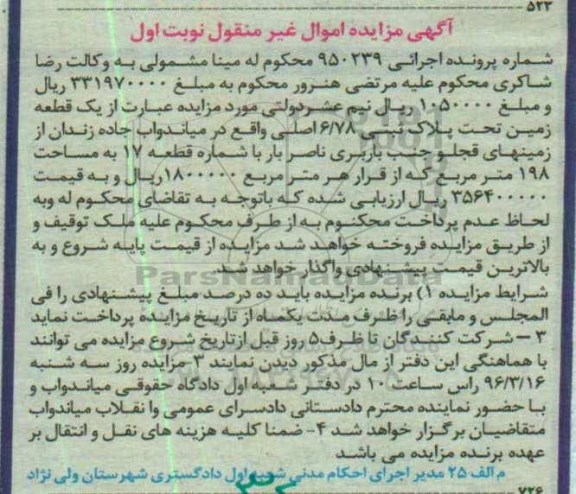 ۵۲۳
آگهی مزایده اموال غیر منقول نوبت اول
شماره پرونده اجرائی ۹۵۰۲۳۹ محکوم له مینا مشمولی به وکالت رضا
شاکری محکوم علیه مرتضی هنرور محکوم به مبلغ ۳۳۱۹۷۰۰۰۰ ریال
و مبلغ ۱۰۵۰۰۰۰ ریال نیم عشردولتی مورد مزایده عبارت از یک قطعه
زمین تحت پلاک ثبتی ۶/۷۸ اصلی واقع در میاندواب جاده زندان از
زمینهای قجلو جنب باربری ناصر بار با شماره قطعه ۱۷ به مساحت
۱۹۸ متر مربع که از قرار هر متر مربع ۱۸۰۰۰۰۰ ریال و به قیمت
۳۵۶۴۰۰۰۰۰ ریال ارزیابی شده که باتوجه به تقاضای محکوم له وبه
لحاظ عدم پرداخت محکوم به از طرف محکوم علیه ملک توقیف و
از طریق مزایده فروخته خواهد شد مزایده از قیمت پایه شروع و به
بالاترین قیمت پیشنهادی واگذار خواهد شد.
ParsNamadData
شرایط مزایده ۱) برنده مزایده باید ده درصد مبلغ پیشنهادی را فی
المجلس و مابقی را ظرف مدت یکماه از تاریخ مزایده پرداخت نماید
۳ – شرکت کنندگان تا ظرف۵ روز قبل ازتاریخ شروع مزایده می توانند
با هماهنگی این دفتر از مال مذکور دیدن نمایند ۳- مزایده روز سه شنبه
۹۶/۳/۱۶ راس ساعت ۱۰ در دفتر شعبه اول دادگاه حقوقی میاندواب و
با حضور نماینده محترم دادستانی دادسرای عمومی وانقلاب میاندواب
متقاضیان برگزار خواهد شد ۴- ضمنا کلیه هزینه های نقل و انتقال بر
عهده برنده مزایده می باشد
م الف ۲۵ مدیر اجرای احکام مدنی شعبه اول دادگستری شهرستان ولی نژاد
۷۲۶